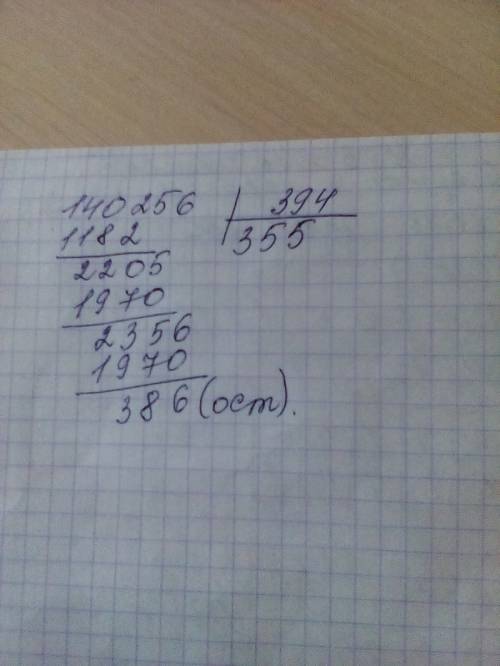 140256 394
1182 355
2205
1970
2356
1970
386 (ост).